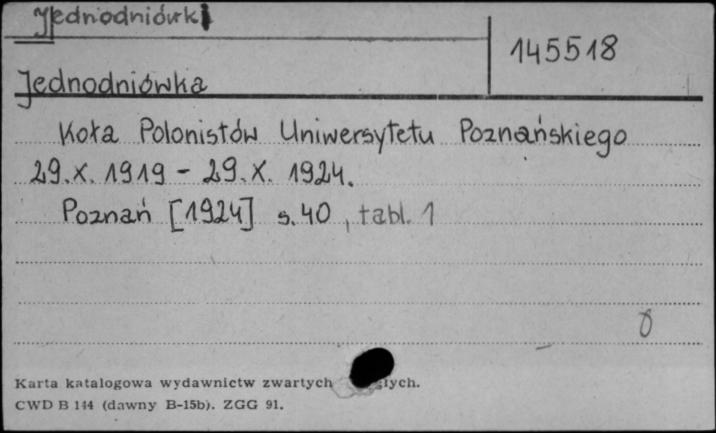 Jednodniówki
145518
Jednodniówka
Koła Polonistów Uniwersytetu Poznańskiego
29.X. 1919 - 29.X. 1924.
Poznań [1924] s. 40, tabl. 1
Karta katalogowa wydawnictw zwartych
CWD B 144 (dawny B-15b). ZGG 91.